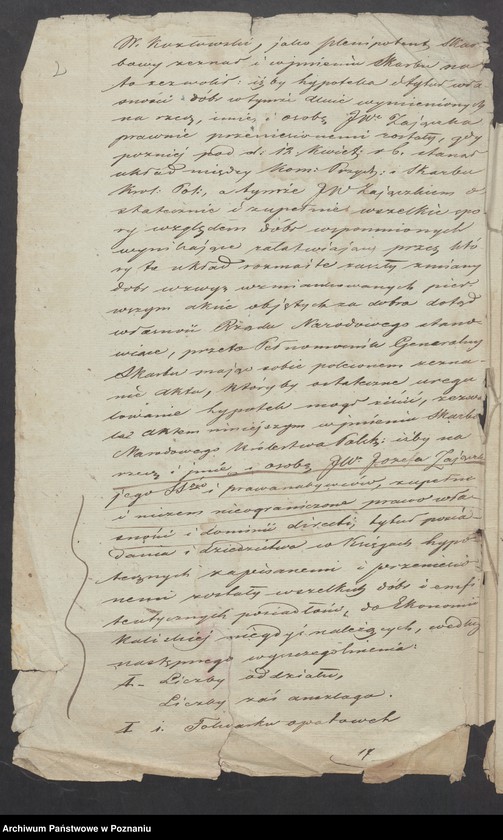 W. Kozłowski, jako plenipotent Skar-
bowy zeznał i w imieniu Skarbu na
to zezwolił: iżby hypoteka i tytuł wła-
sności dóbr w tymże akcie wymienionych
na rzecz, imię i osobę JWo Zajączka
prawnie przeniesionemi zostały, gdy
pozniej pod d. 12. Kwiet: r. b. stanął
układ między Kom: Rząd: i Skarbu
Król: Pol:, a tymże JW Zajączkiem o-
statecznie i zupełnie wszelkie spo-
ry względem dóbr wspomnionych
wynikające załatwiający przez któ-
ry to układ rozmaite zaszły zmiany
dóbr w zwyż wzmiankowanych pier-
wszym akcie objętych za dobra dotąd
własność Rządu Narodowego stano-
wiące, przeto Pełnomocnik Generalny
Skarbu mając sobie polecenie zezna-
nie aktu, któryby ostateczne uregu-
lowanie hypotek mógł ziścić, zezwa-
la aktem niniejszym w imieniu Skarbu
Narodowego Królestwa Polsk: iżby na
rzecz i imie i osobę JWo Jozefa Zajączka
jego i prawonabywców, zupełną
i niczem nieograniczone prawo wła-
sności i dominii directi, tytuł posia-
dania i dziedzictwa w Księgach hypo-
tecznych zapisanemi i przeniesio-
nemi zostały wszelkich dóbr i emfi-
teutycznych posiadłów, do Ekonomii
Kaliskiej niegdyś należących, według
następnego wyszczególnienia:
A. Liczby oddziału,
Liczby zaś
I 1. Folwarku opatowek